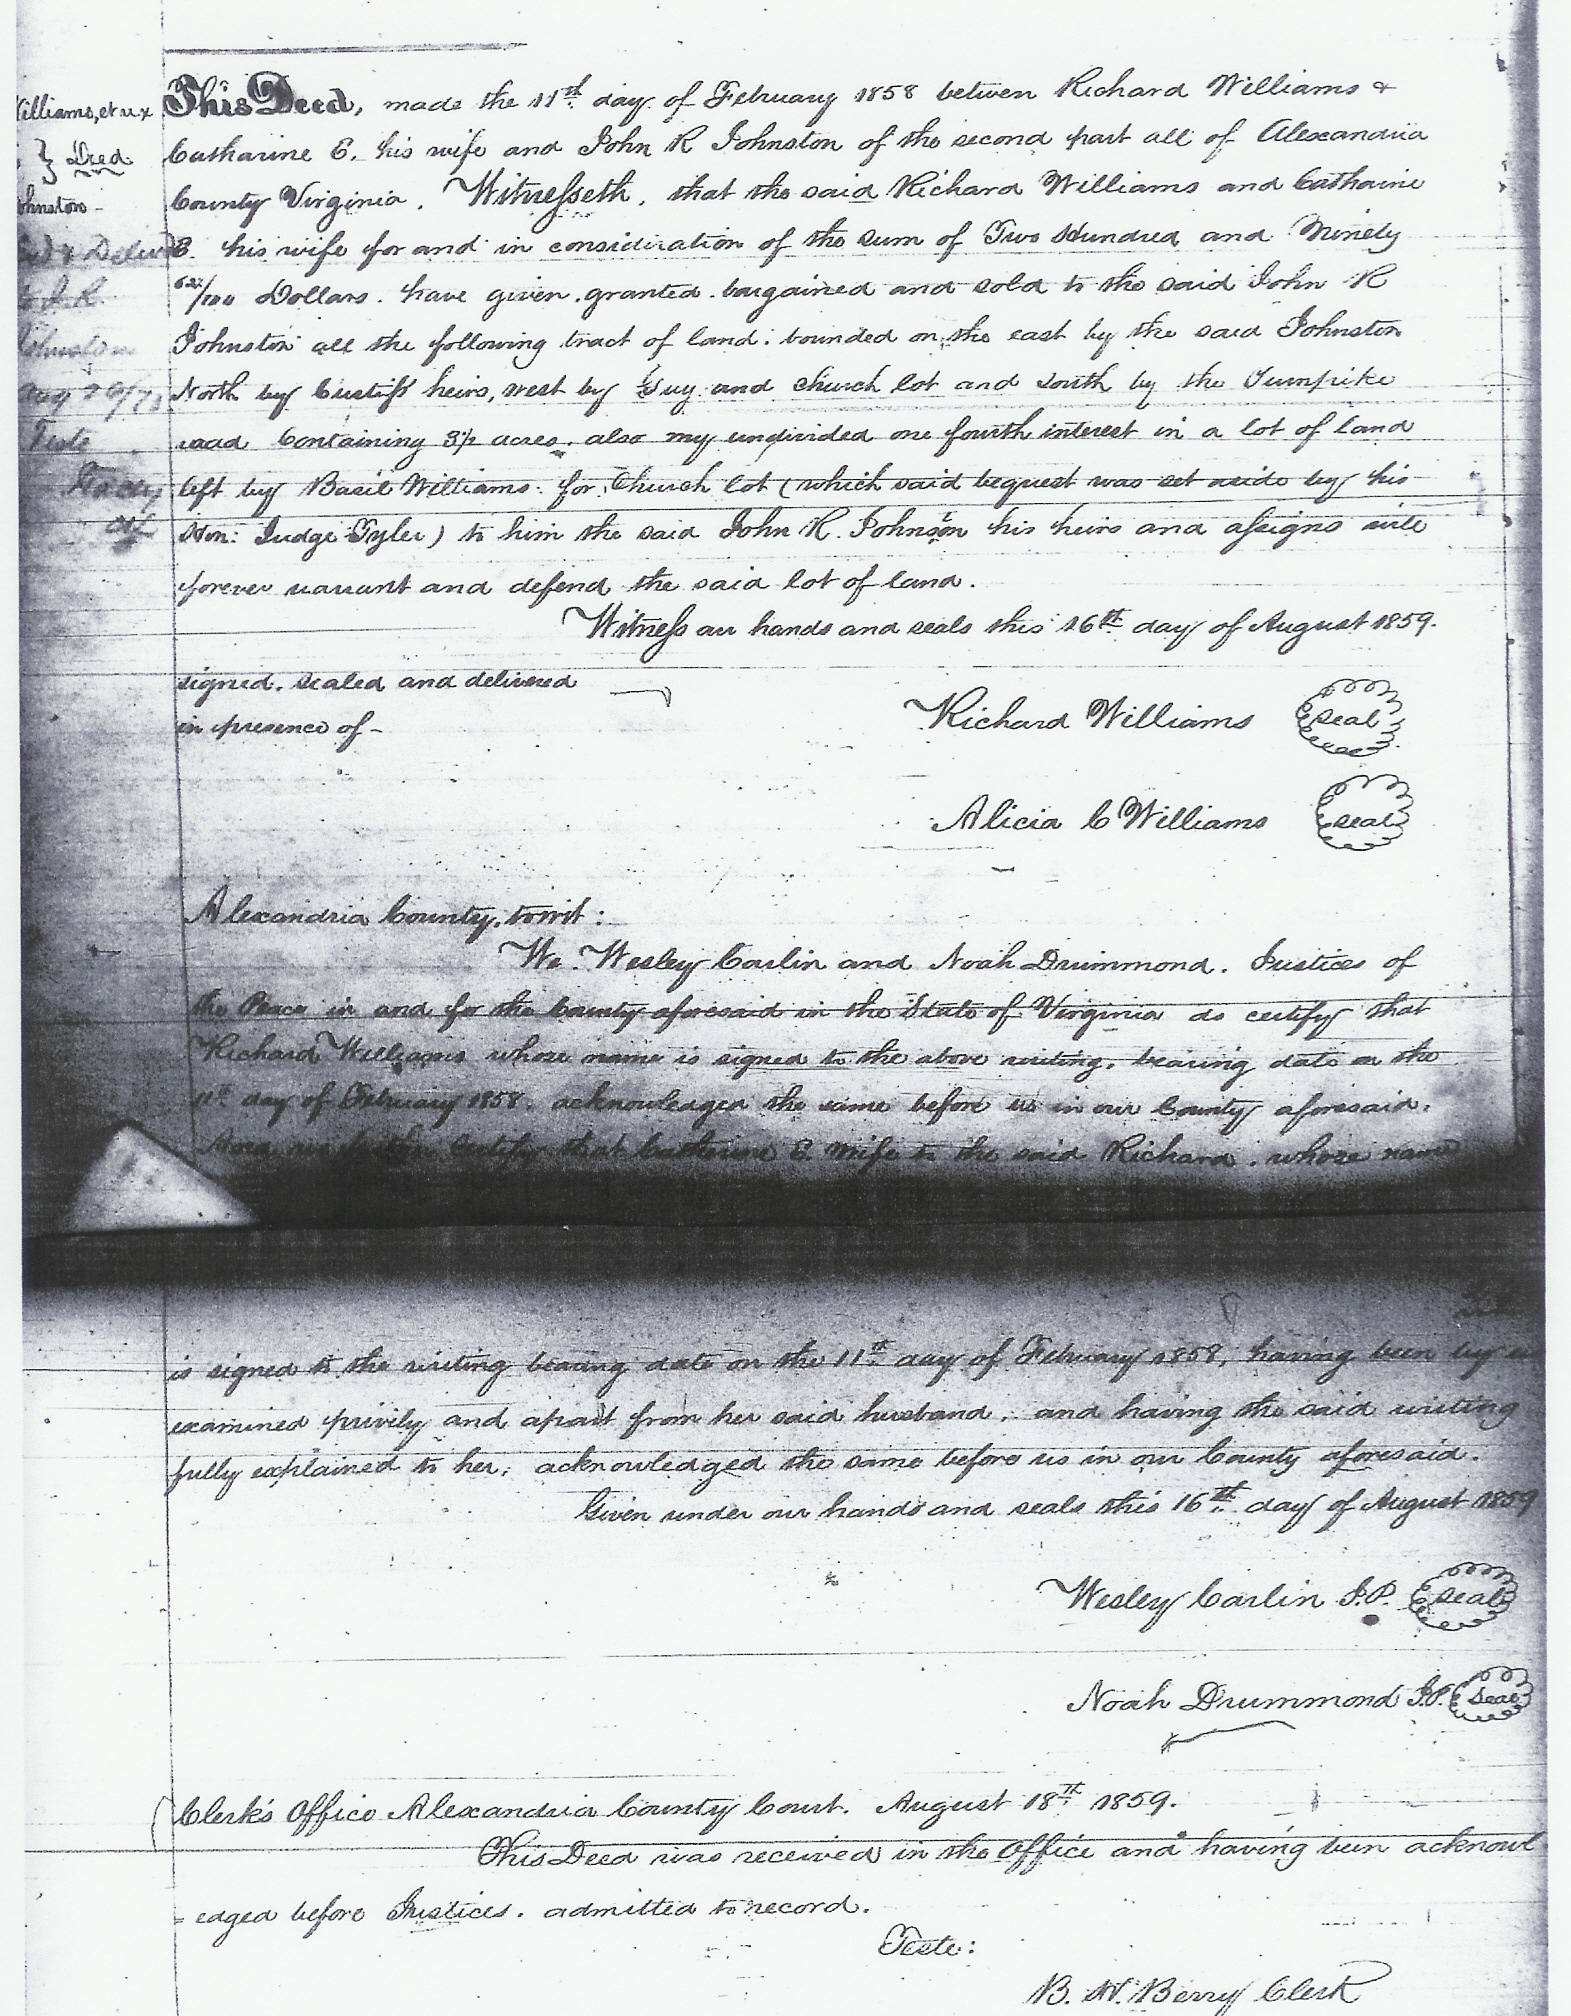 illiams, et ux
} Deed
ohnston
J. R.
Johnston
Aug 20/7
Teste
This Deed, made the 11th day of February 1858 between Richard Williams &
Catharine E. his wife and John R Johnston of the second part all of Alexandria
County Virginia. Witnesseth, that the said Richard Williams and Catharine
E. his wife for and in consideration of the sum of Two Hundred and Ninety
/100 Dollars. have given, granted, bargained and sold to the said John R
Johnston all the following tract of land: bounded on the east by the said Johnston
North by Custis' heirs, west by Guy and church lot and south by the Turnpike
road Containing 3½ acres, also my undivided one fourth interest in a lot of land
left by Basil Williams: for Church lot (which said bequest was set aside by his
Hon: Judge Tyler) to him the said John R. Johnson his heirs and assigns will
forever warrant and defend the said lot of land.
Witness our hands and seals this 16th day of August 1859.
signed, sealed and delivered
in presence of -
Richard Williams seal
Alicia C Williams seal
Alexandria County, towit:
We. Wesley Carlin and Noah Drummond. Justices of
the Peace in and for the County aforesaid in the State of Virginia do certify that
Richard Williams whose name is signed to the above writing, bearing date on the
11th day of February 1858. acknowledged the same before us in our County aforesaid.
certify that Catherine E. wife to the said Richard, whose name
is signed to the writing bearing date on the 11th day of February 1858, having been by us
examined privily and apart from her said husband, and having the said writing
fully explained to her, acknowledged the same before us in our County aforesaid.
Given under our hands and seals this 16th day of August 1859
Wesley Carlin J.P. seal
Noah Drummond J.P. seal
Clerk's Office Alexandria County Court. August 18th 1859.
This Deed was received in the Office and having been acknowl
= edged before Justices. admitted to record.
Teste:
B. H. Berry Clerk